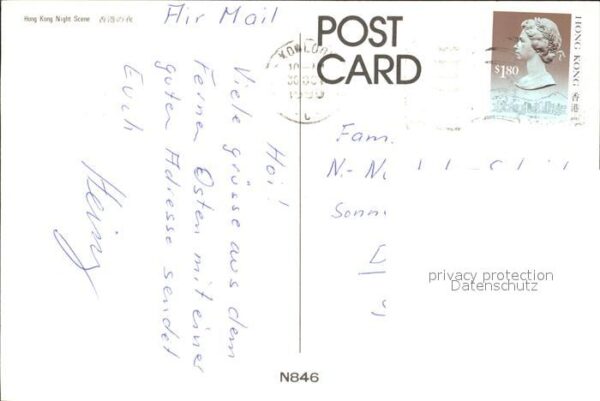 Hong Kong Night Scene 香港の夜
Air Mail
Hoi!
Viele grüsse aus dem
Fernen Osten mit einer
guten Adresse sendet
Euch
Heinz
POST
CARD
KOWLOON
HONG KONG 香港
$1.80
Fam.
N.-N
Sonn
privacy protection
Datenschutz
N846